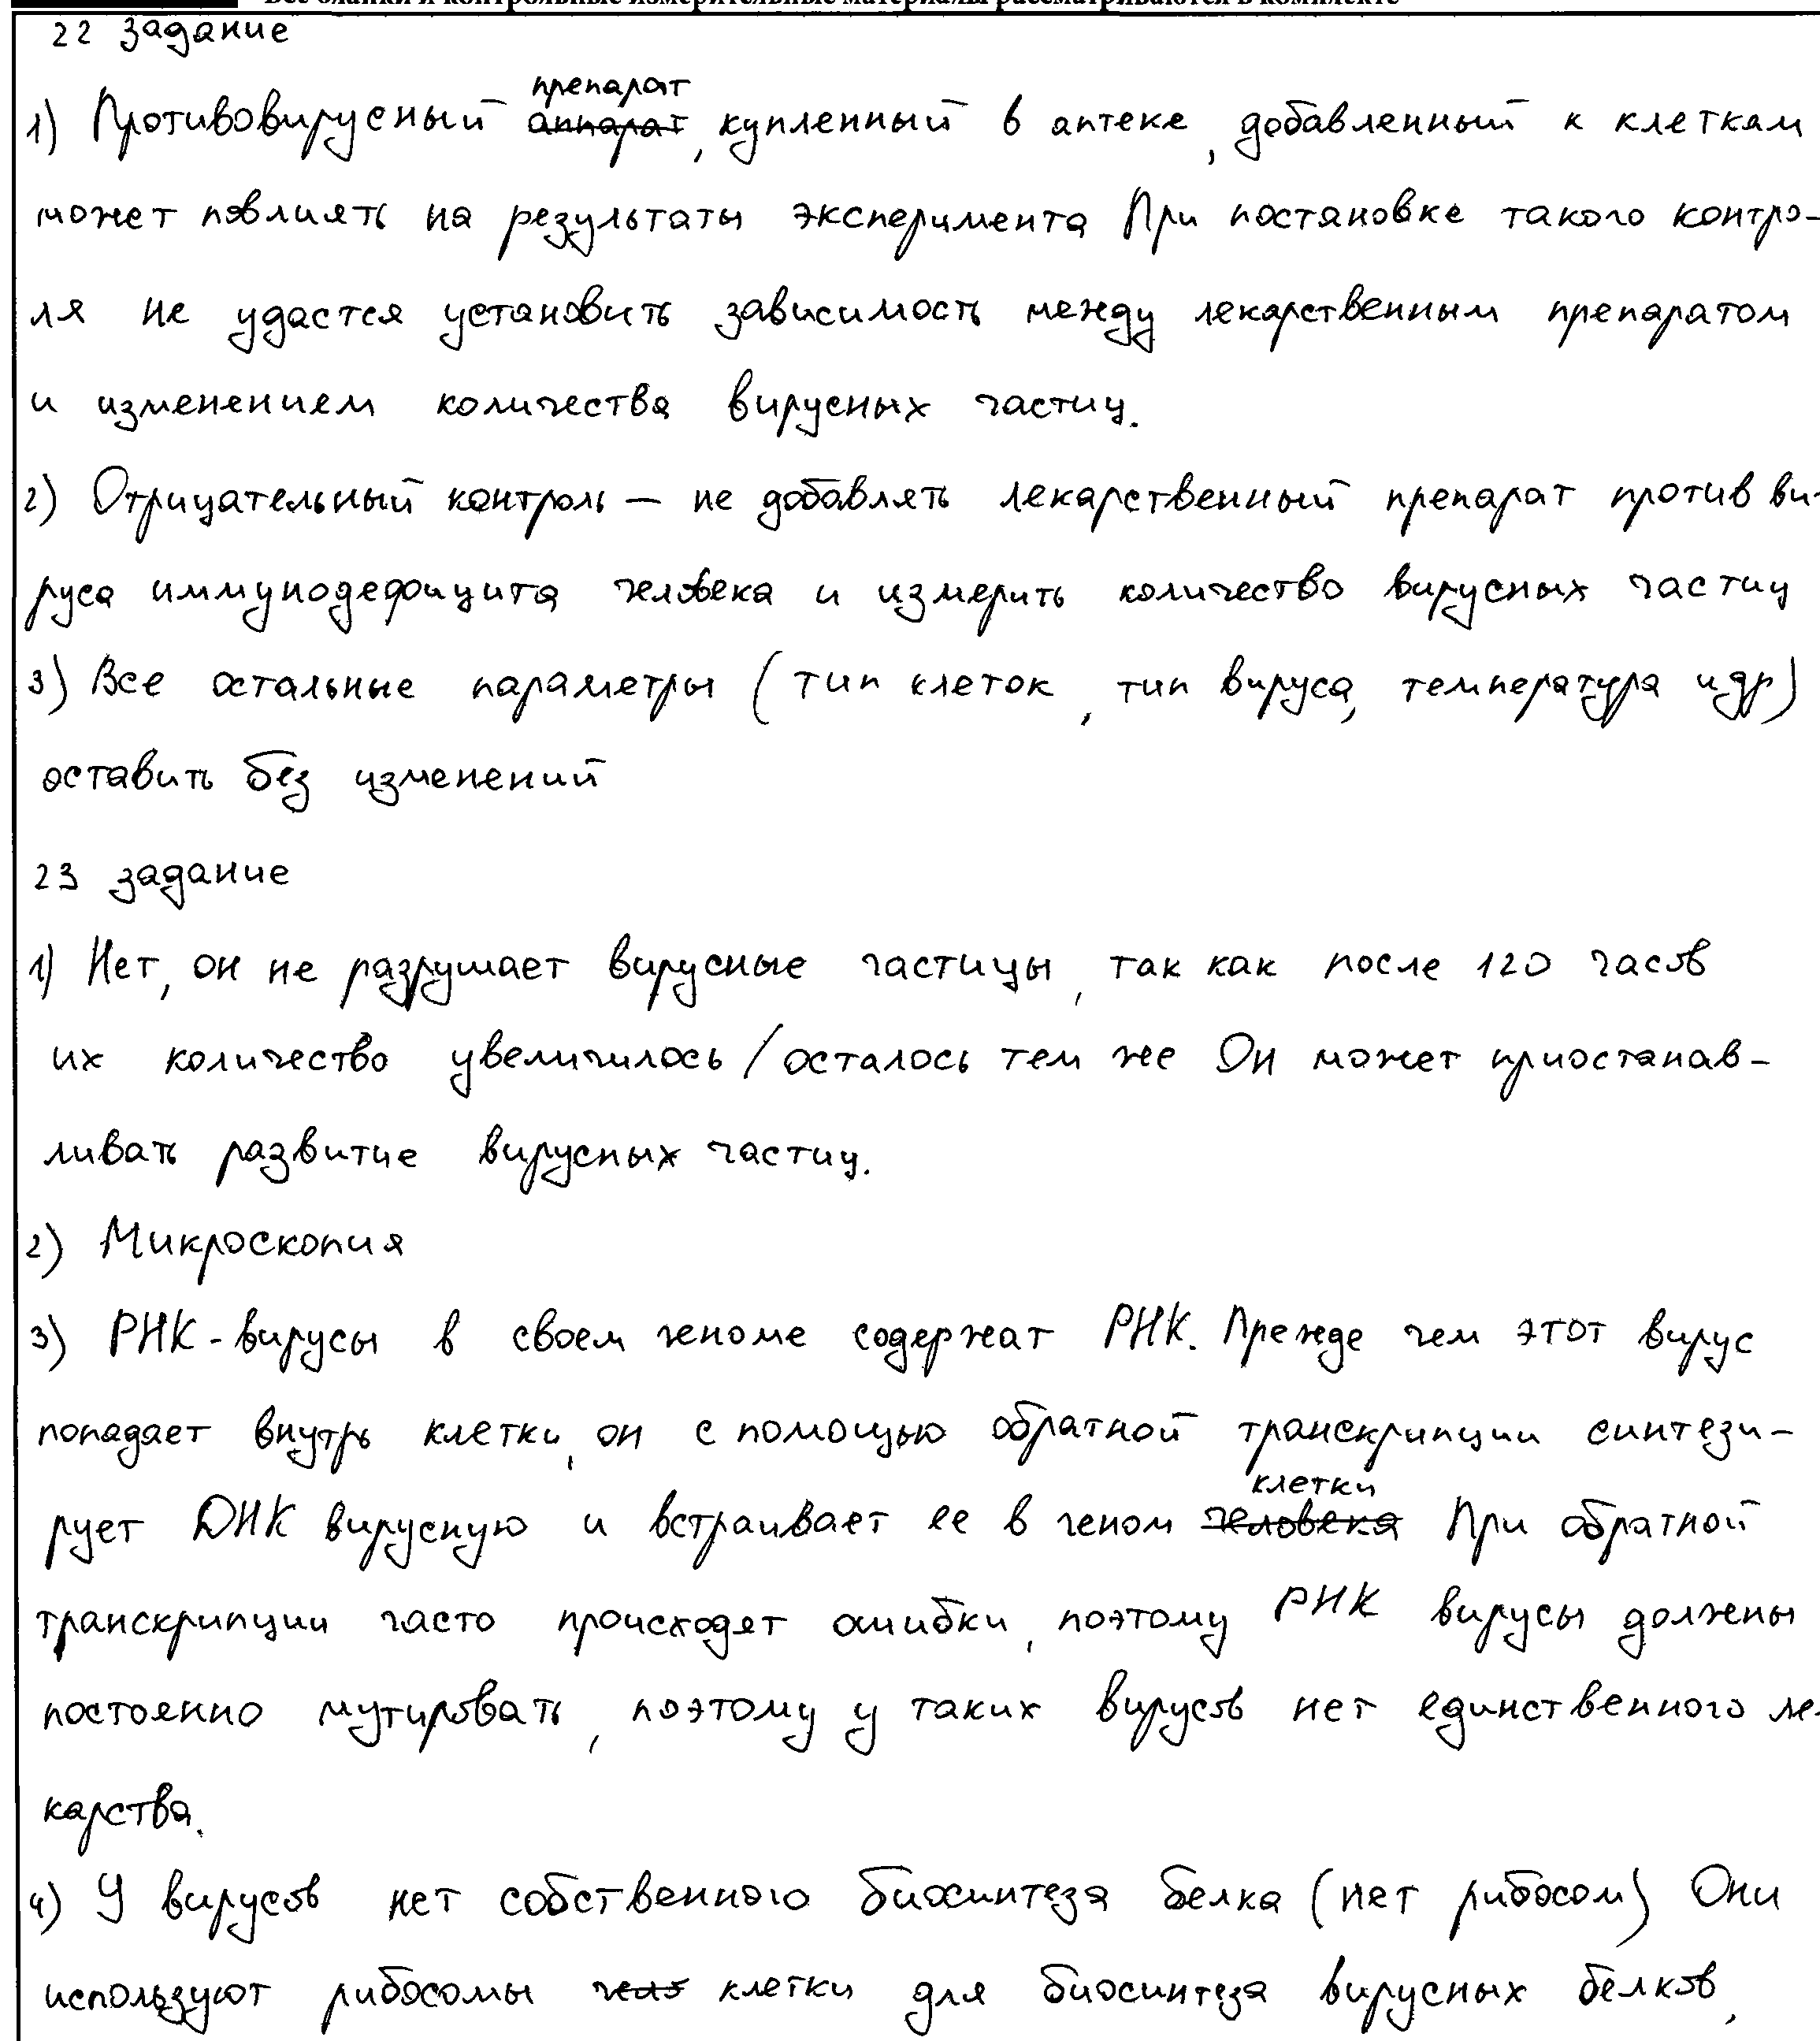 Все бланки и контрольные измерительные материалы рассматриваются в комплекте
22 задание
препарат
1) Противовирусный аппарат, купленный в аптеке, добавленный к клеткам
может повлиять на результаты эксперимента При постановке такого контро-
ля не удастся установить зависимость между лекарственным препаратом
и изменением количества вирусных частиц.
2) Отрицательный контроль – не добавлять лекарственный препарат против ви-
руса иммунодефицита человека и измерить количество вирусных частиц
3) Все остальные параметры (тип клеток, тип вируса, температура и др)
оставить без изменений
23 задание
1) Нет, он не разрушает вирусные частицы, так как после 120 часов
их количество увеличилось / осталось тем же Он может приостанав-
ливать развитие вирусных частиц.
2) Микроскопия
3) РНК-вирусы в своем геноме содержат РНК. Прежде чем этот вирус
попадает внутрь клетки, он с помощью обратной транскрипции синтези-
клетки
рует ДНК вирусную и встраивает ее в геном человека При обратной
транскрипции часто происходят ошибки, поэтому РНК вирусы должены
постоянно мутировать, поэтому у таких вирусов нет единственного ле-
карства.
4) У вирусов нет собственного биосинтеза белка (нет рибосом) Они
используют рибосомы чело клетки для биосинтеза вирусных белков,